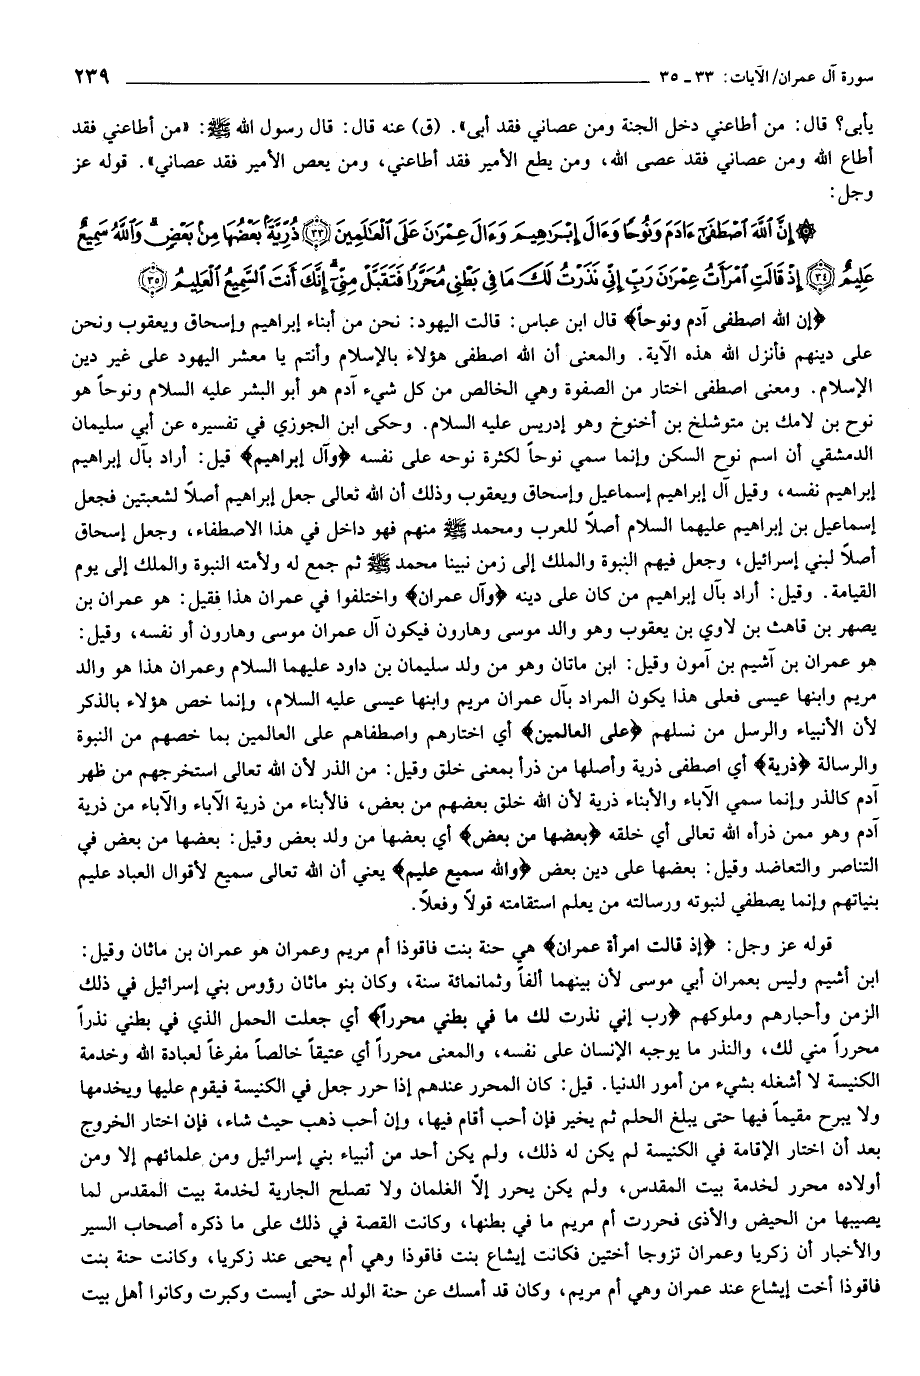 سورة آل عمران/ الآيات: ٣٣ ـ ٣٥ ٢٣٩
يأبى؟ قال: من أطاعني دخل الجنة ومن عصاني فقد أبى». (ق) عنه قال: قال رسول الله ﷺ: «من أطاعني فقد
أطاع الله ومن عصاني فقد عصى الله، ومن يطع الأمير فقد أطاعني، ومن يعص الأمير فقد عصاني». قوله عز
وجل:
۞ إِنَّ ٱللَّهَ ٱصْطَفَىٰٓ ءَادَمَ وَنُوحًا وَءَالَ إِبْرَٰهِيمَ وَءَالَ عِمْرَٰنَ عَلَى ٱلْعَٰلَمِينَ ﴿٣٣﴾ ذُرِّيَّةًۢ بَعْضُهَا مِنۢ بَعْضٍۗ وَٱللَّهُ سَمِيعٌ
عَلِيمٌ ﴿٣٤﴾ إِذْ قَالَتِ ٱمْرَأَتُ عِمْرَٰنَ رَبِّ إِنِّي نَذَرْتُ لَكَ مَا فِي بَطْنِي مُحَرَّرًا فَتَقَبَّلْ مِنِّيٓۖ إِنَّكَ أَنتَ ٱلسَّمِيعُ ٱلْعَلِيمُ ﴿٣٥﴾
﴿إن الله اصطفى آدم ونوحاً﴾ قال ابن عباس: قالت اليهود: نحن من أبناء إبراهيم وإسحاق ويعقوب ونحن
على دينهم فأنزل الله هذه الآية. والمعنى أن الله اصطفى هؤلاء بالإسلام وأنتم يا معشر اليهود على غير دين
الإسلام. ومعنى اصطفى اختار من الصفوة وهي الخالص من كل شيء آدم هو أبو البشر عليه السلام ونوحاً هو
نوح بن لامك بن متوشلخ بن أخنوخ وهو إدريس عليه السلام. وحكى ابن الجوزي في تفسيره عن أبي سليمان
الدمشقي أن اسم نوح السكن وإنما سمي نوحاً لكثرة نوحه على نفسه ﴿وآل إبراهيم﴾ قيل: أراد بآل إبراهيم
إبراهيم نفسه، وقيل آل إبراهيم إسماعيل وإسحاق ويعقوب وذلك أن الله تعالى جعل إبراهيم أصلاً لشعبتين فجعل
إسماعيل بن إبراهيم عليهما السلام أصلاً للعرب ومحمد ﷺ منهم فهو داخل في هذا الاصطفاء، وجعل إسحاق
أصلاً لبني إسرائيل، وجعل فيهم النبوة والملك إلى زمن نبينا محمد ﷺ ثم جمع له ولأمته النبوة والملك إلى يوم
القيامة. وقيل: أراد بآل إبراهيم من كان على دينه ﴿وآل عمران﴾ واختلفوا في عمران هذا فقيل: هو عمران بن
يصهر بن قاهث بن لاوي بن يعقوب وهو والد موسى وهارون فيكون آل عمران موسى وهارون أو نفسه، وقيل:
هو عمران بن آشيم بن آمون وقيل: ابن ماتان وهو من ولد سليمان بن داود عليهما السلام وعمران هذا هو والد
مريم وابنها عيسى فعلى هذا يكون المراد بآل عمران مريم وابنها عيسى عليه السلام، وإنما خص هؤلاء بالذكر
لأن الأنبياء والرسل من نسلهم ﴿على العالمين﴾ أي اختارهم واصطفاهم على العالمين بما خصهم من النبوة
والرسالة ﴿ذرية﴾ أي اصطفى ذرية وأصلها من ذرأ بمعنى خلق وقيل: من الذر لأن الله تعالى استخرجهم من ظهر
آدم كالذر وإنما سمي الآباء والأبناء ذرية لأن الله خلق بعضهم من بعض، فالأبناء من ذرية الآباء والآباء من ذرية
آدم وهو ممن ذرأه الله تعالى أي خلقه ﴿بعضها من بعض﴾ أي بعضها من ولد بعض وقيل: بعضها من بعض في
التناصر والتعاضد وقيل: بعضها على دين بعض ﴿والله سميع عليم﴾ يعني أن الله تعالى سميع لأقوال العباد عليم
بنياتهم وإنما يصطفي لنبوته ورسالته من يعلم استقامته قولاً وفعلاً.
قوله عز وجل: ﴿إذ قالت امرأة عمران﴾ هي حنة بنت فاقوذا أم مريم وعمران هو عمران بن ماثان وقيل:
ابن أشيم وليس بعمران أبي موسى لأن بينهما ألفاً وثمانمائة سنة، وكان بنو ماثان رؤوس بني إسرائيل في ذلك
الزمن وأحبارهم وملوكهم ﴿رب إني نذرت لك ما في بطني محرراً﴾ أي جعلت الحمل الذي في بطني نذراً
محرراً مني لك، والنذر ما يوجبه الإنسان على نفسه، والمعنى محرراً أي عتيقاً خالصاً مفرغاً لعبادة الله وخدمة
الكنيسة لا أشغله بشيء من أمور الدنيا. قيل: كان المحرر عندهم إذا حرر جعل في الكنيسة فيقوم عليها ويخدمها
ولا يبرح مقيماً فيها حتى يبلغ الحلم ثم يخير فإن أحب أقام فيها، وإن أحب ذهب حيث شاء، فإن اختار الخروج
بعد أن اختار الإقامة في الكنيسة لم يكن له ذلك، ولم يكن أحد من أنبياء بني إسرائيل ومن علمائهم إلا ومن
أولاده محرر لخدمة بيت المقدس، ولم يكن يحرر إلاّ الغلمان ولا تصلح الجارية لخدمة بيت المقدس لما
يصيبها من الحيض والأذى فحررت أم مريم ما في بطنها، وكانت القصة في ذلك على ما ذكره أصحاب السير
والأخبار أن زكريا وعمران تزوجا أختين فكانت إيشاع بنت فاقوذا وهي أم يحيى عند زكريا، وكانت حنة بنت
فاقوذا أخت إيشاع عند عمران وهي أم مريم، وكان قد أمسك عن حنة الولد حتى أيست وكبرت وكانوا أهل بيت